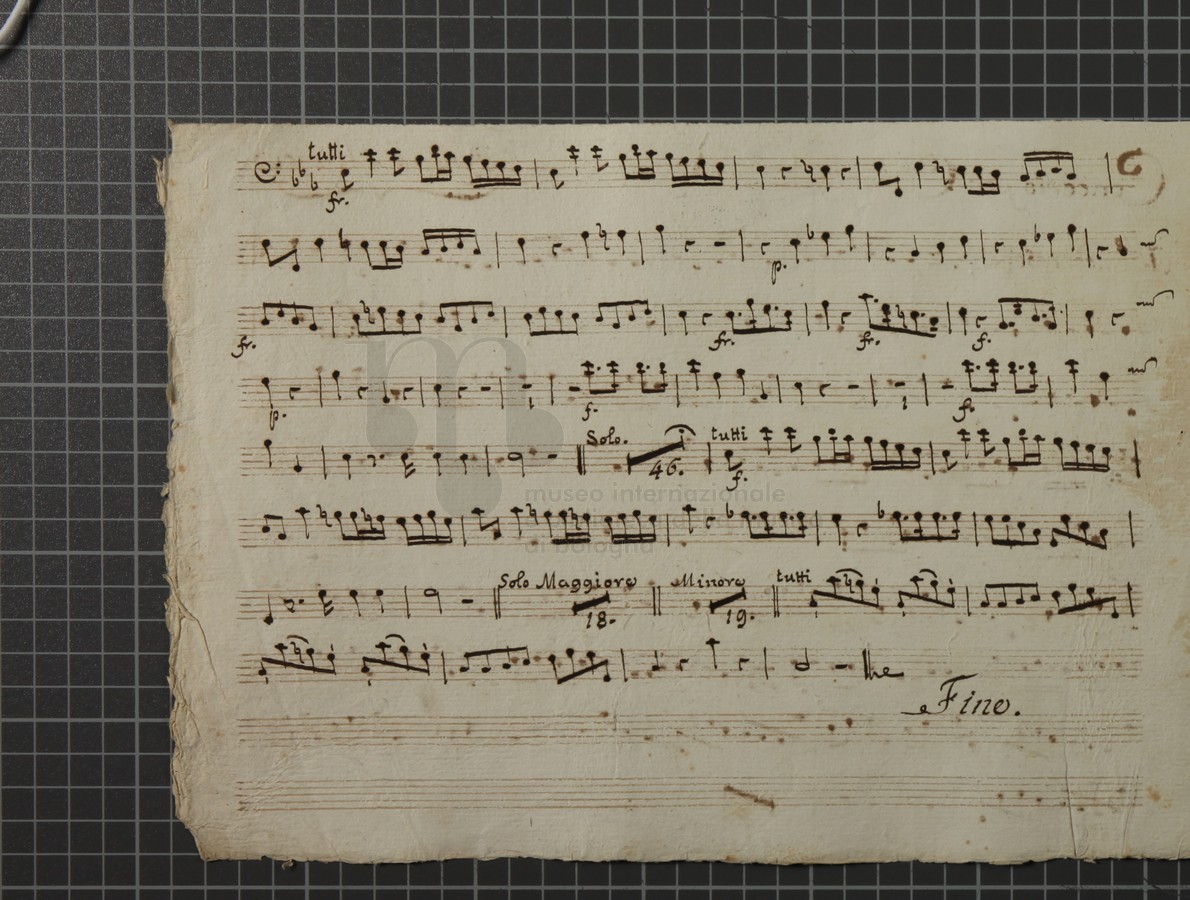 tutti
fr.
p.
fr. fr. fr. f.
p. 1 f. 1 f.
Solo. 46. tutti f.
museo internazionale
di bologna
Solo Maggiore 18. Minore 19. tutti
Fine.